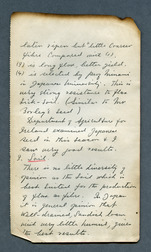 later & open but little coarser
fibre compared with (1).
(3) is long flax better yield.
(4) is selected by
in Japanese University. This is
very strong resistance to flax
sick-soil. (Similar to
seed)
Department of Agriculture for
Ireland examined Japanese
seed in this season & I
saw very good result.
8. Soil
There is no little diversity of
opinion as the soil which is
best suited for the production
of flax as fibre. In Japan
it is general opinion that
well-drained, sandy loam
and very little humus, gives
the best results.